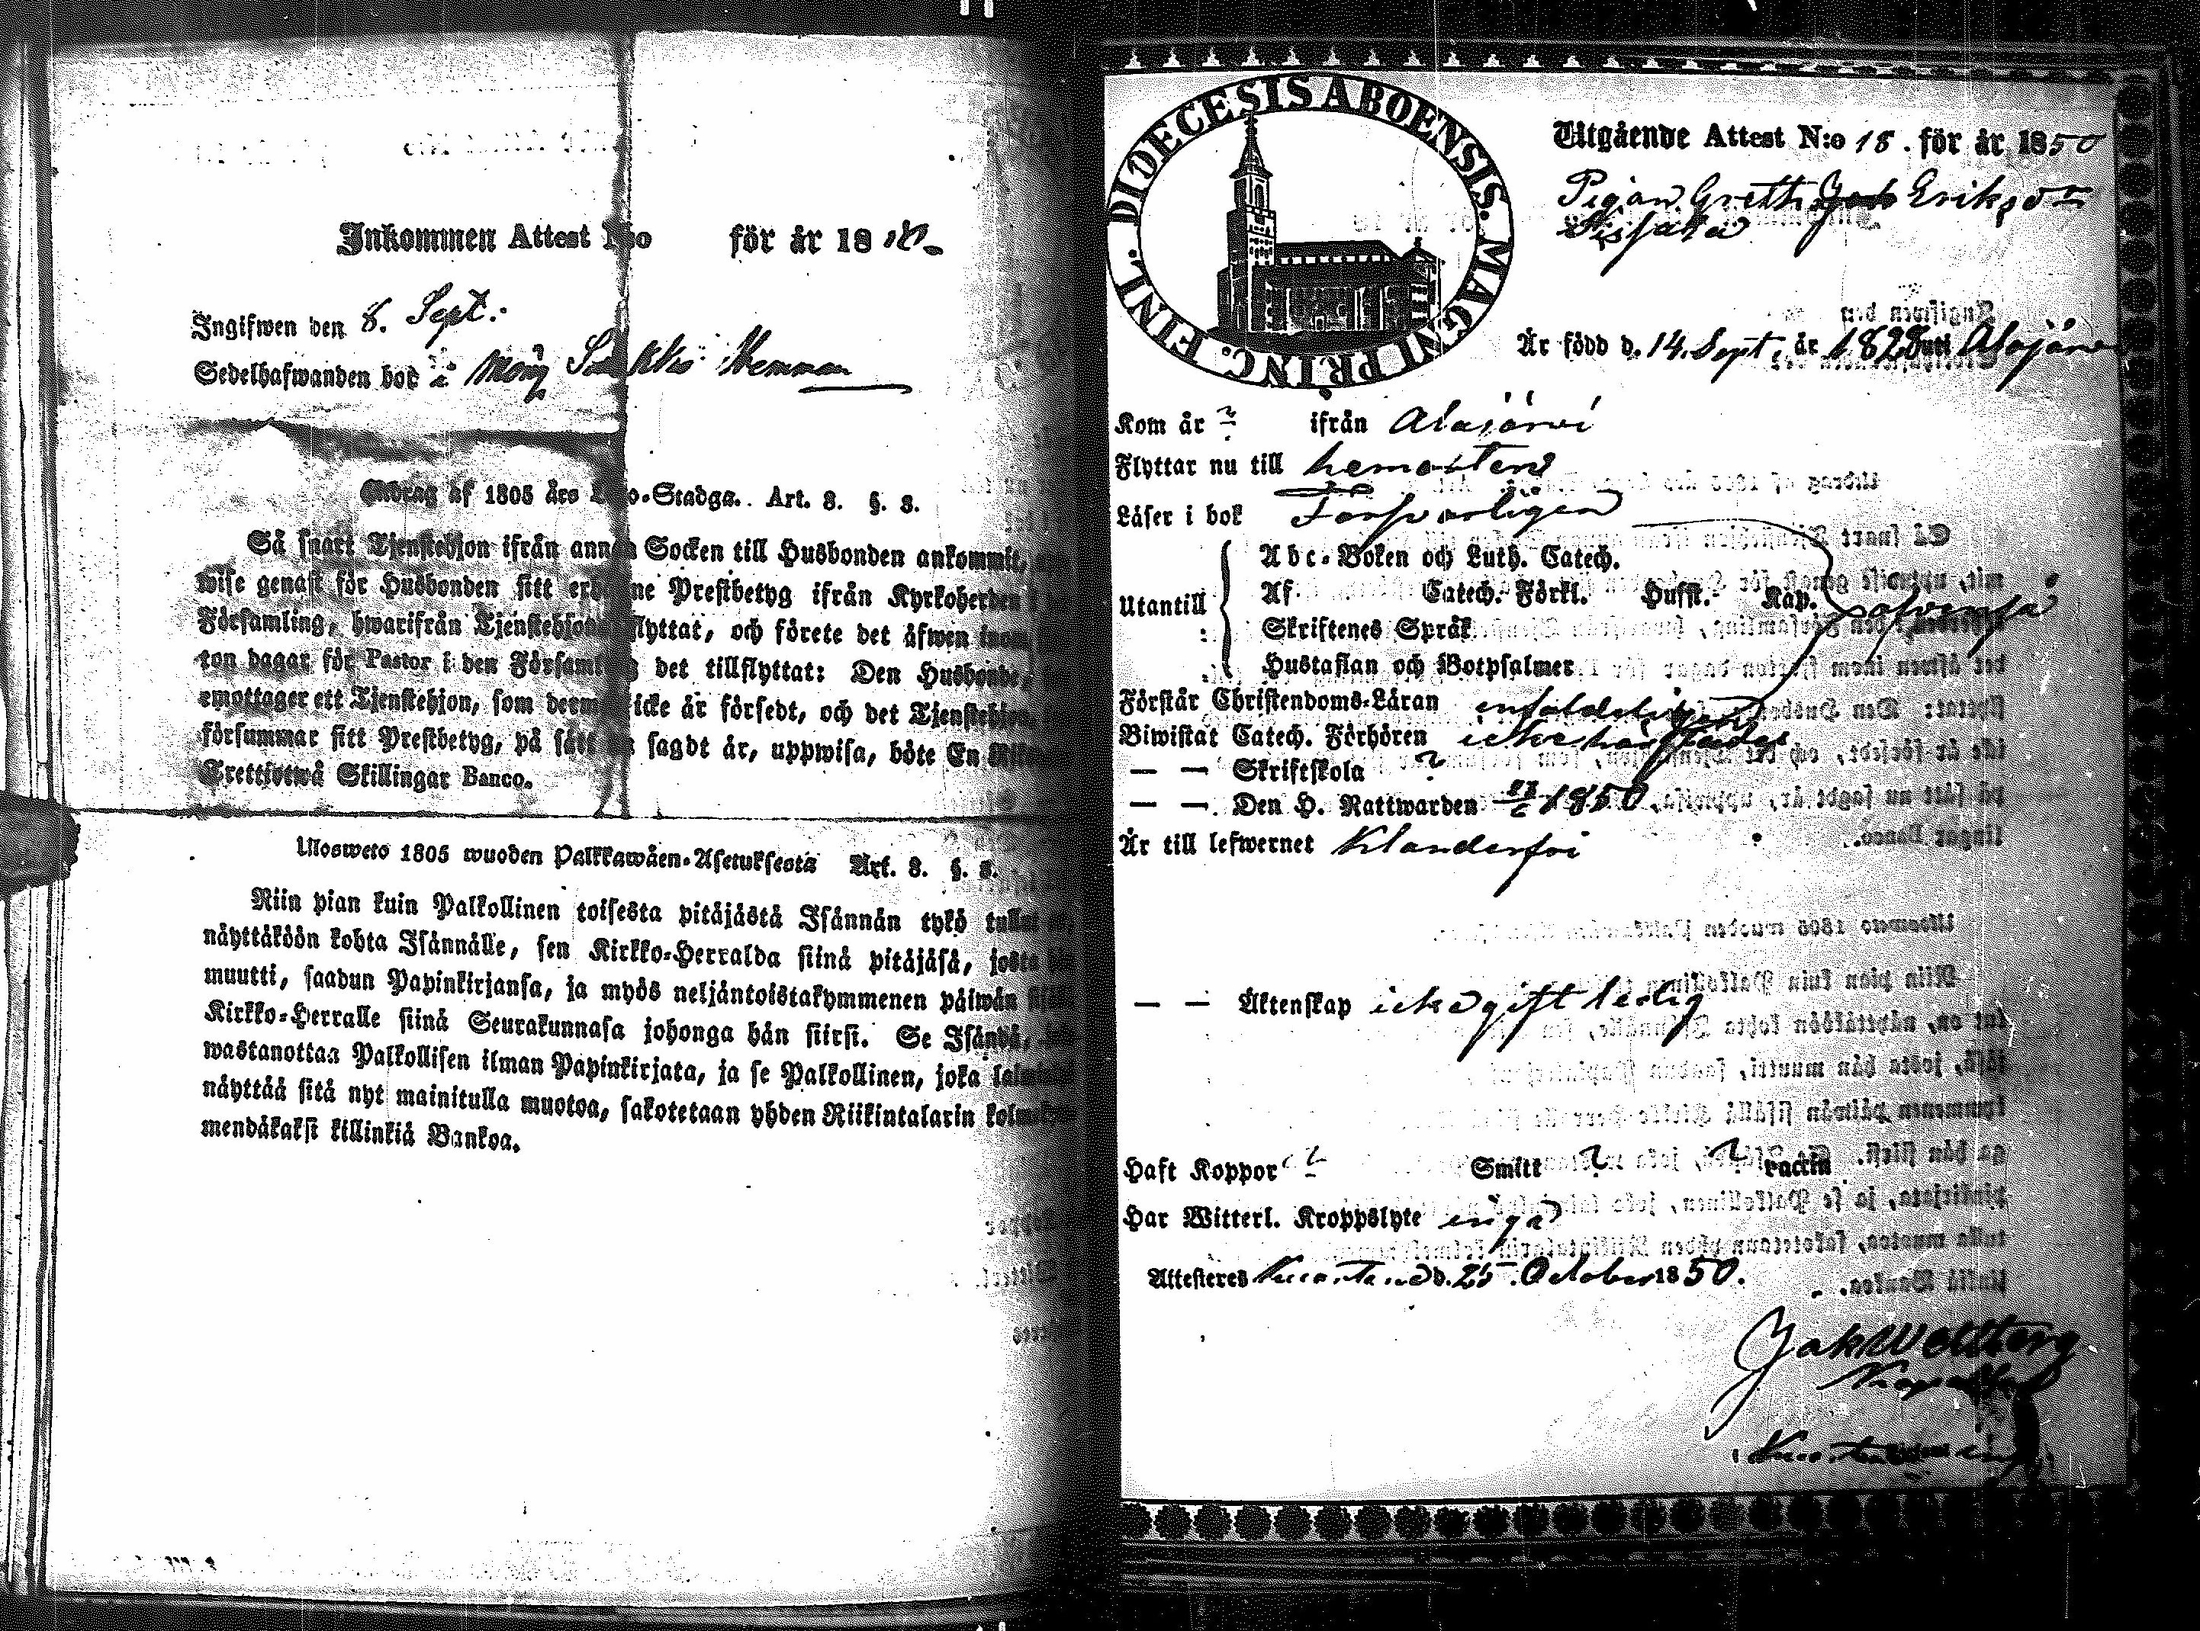 Inkommen Attest N:o för år 18
Ingifwen den 8. Sept:
Sedelhafwanden bor i Hemman
Utdrag af 1805 års Lego-Stadga. Art. 8. §. 8.
Så snart Tjenstehjon ifrån annan Socken till Husbonden ankommit,
wise genast för Husbonden sitt erhållne Prestbetyg ifrån Kyrkoherden
Församling, hwarifrån Tjenstehjonet flyttat, och förete det äfwen inom
ton dagar för Pastor i den Församling det tillflyttat: Den Husbonde,
emottager ett Tjenstehjon, som dermed icke är försedt, och det Tjenstehjon,
försummar sitt Prestbetyg, på sätt nu sagdt är, uppwisa, böte En
Trettiotwå Skillingar Banco.
Ulosweto 1805 wuoden Palkkawäen-Asetuksesta Art. 8. §. 8.
Niin pian kuin Palkollinen toisesta pitäjästä Isännän tykö tullut
näyttäköön kohta Isännälle, sen Kirkko-Herralda siinä pitäjäsä, josta
muutti, saadun Papinkirjansa, ja myös neljäntoistakymmenen päiwän
Kirkko-Herralle siinä Seurakunnasa johonga hän siirsi. Se Isändä,
wastanottaa Palkollisen ilman Papinkirjata, ja se Palkollinen, joka
näyttää sitä nyt mainitulla muotoa, sakotetaan yhden Riikintalarin
mendäkaksi killinkiä Bankoa.
DIOECESIS ABOENSIS. MAGNI PRINC. FINL.
Utgående Attest N:o 18. för år 1850
Pigan Greth Erik
Är född d. 14. Sept. år 1828 uti Alajärvi
Kom år ? ifrån Alajärvi
Flyttar nu till hemorten
Läser i bok Förswarligen
Utantill
Abc-Boken och Luth. Catech.
Af Catech. Förkl. Husst. Kap.
Skriftenes Språk
Hustaflan och Botpsalmer
Förstår Christendoms-Läran enfaldeligen
Biwistat Catech. Förhören icke härstädes
— — Skriftskola ?
— — Den H. Nattwarden 1850.
Är till lefwernet Klanderfri
— — Äktenskap icke gift ledig
Haft Koppor ? Smitt ? vaccin ?
Har Witterl. Kroppslyte inga
Attesteras d. 25. October 1850.
Jak Wellberg